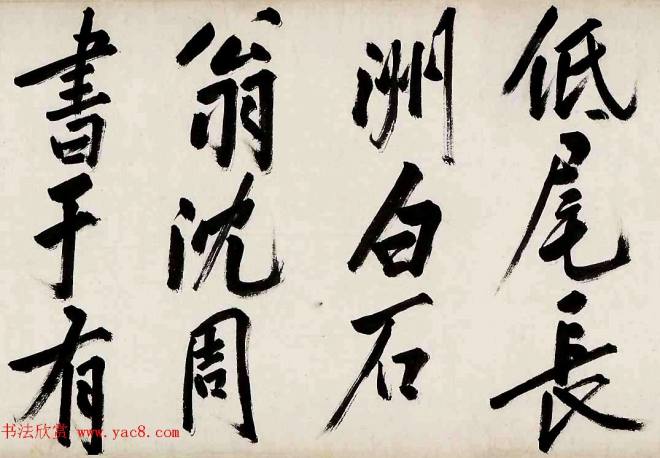 低尾長
洲白石
翁沈周
書于有
书法欣赏 www.yac8.com